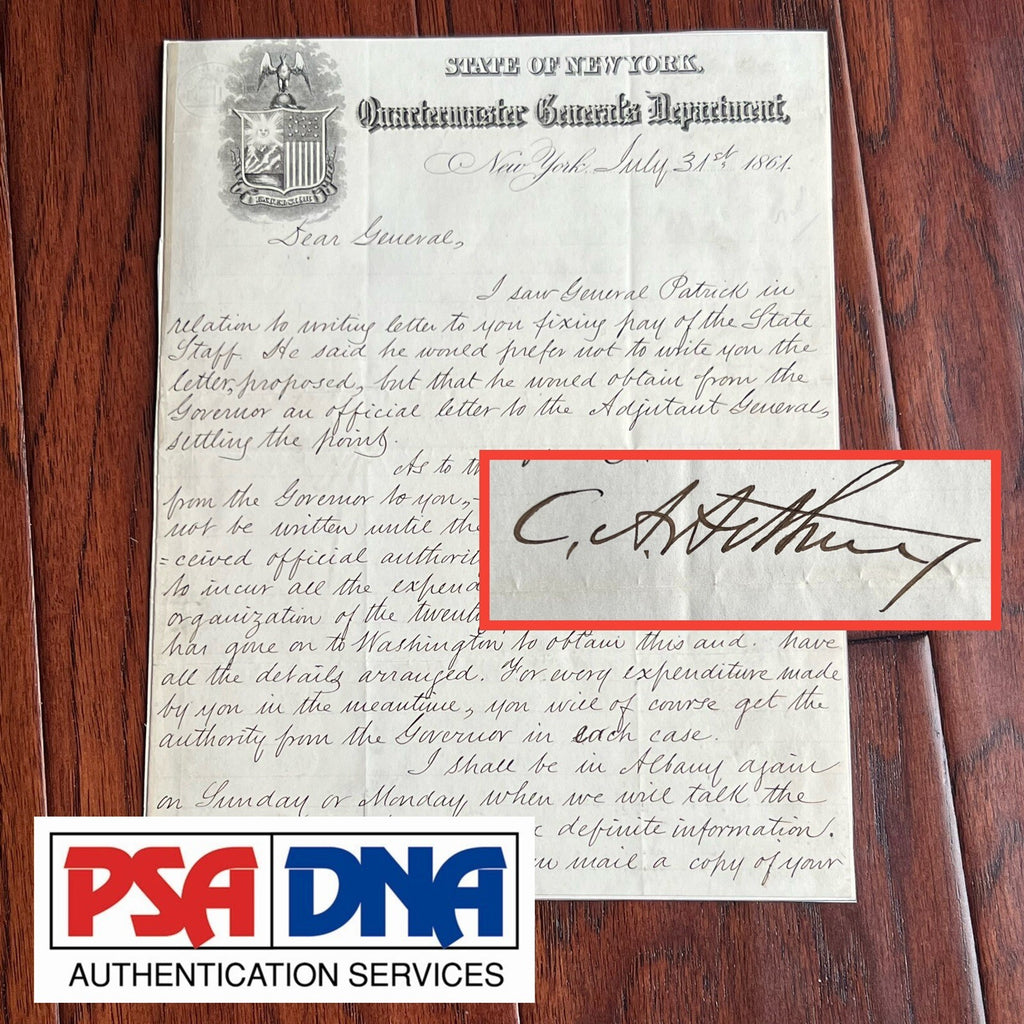 STATE OF NEW YORK,
Quartermaster General's Department,
New York, July 31st 1861.
Dear General,
I saw General Patrick in
relation to writing letter to you fixing pay of the State
Staff. He said he would prefer not to write you the
letter, proposed, but that he would obtain from the
Governor an official letter to the Adjutant General,
settling the point.
As to th
from the Governor to you,
not be written until the
=ceived official authorit
to incur all the expend
organization of the twent
has gone on to Washington to obtain this and have
all the details arranged. For every expenditure made
by you in the meantime, you will of course get the
authority from the Governor in each case.
I shall be in Albany again
on Sunday or Monday, when we will talk the
definite information.
mail a copy of your
C. A. Arthur
PSA DNA
AUTHENTICATION SERVICES